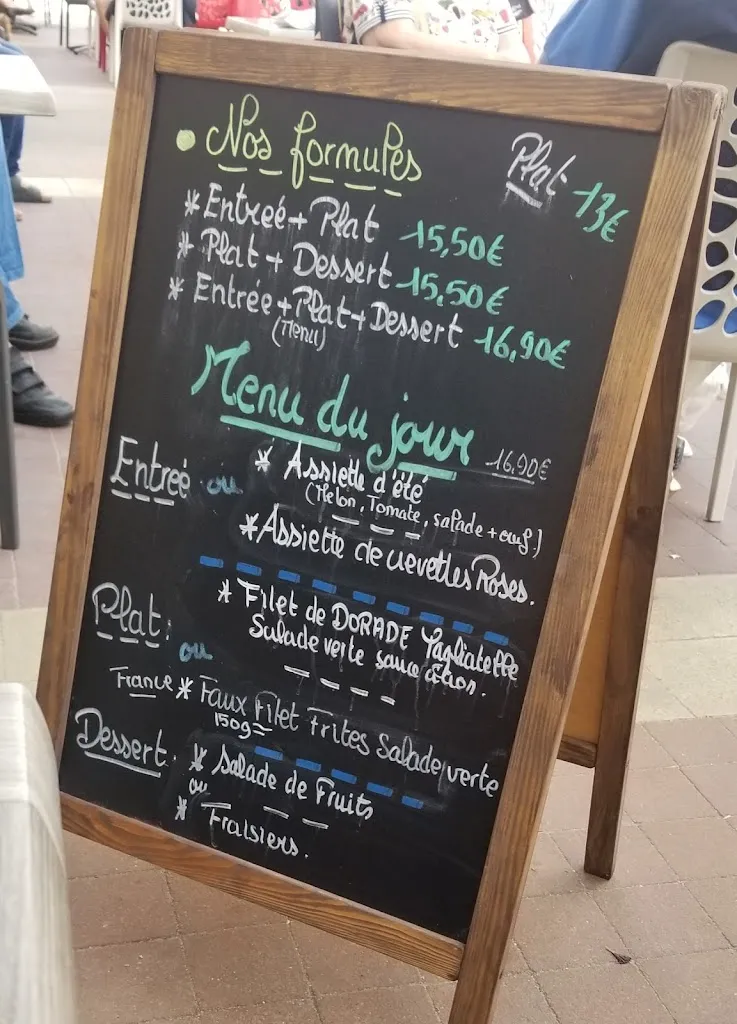 Nos formules
Plat 13€
* Entreé + Plat 15,50€
* Plat + Dessert 15,50€
* Entrée + Plat + Dessert 16,90€
(Menu)
Menu du jour 16.90€
Entreé ou * Assiette d'été
(Melon, Tomate, salade + œuf)
* Assiette de crevettes Roses.
Plat: * Filet de DORADE Tagliatelle
ou Salade verte sauce citron.
France * Faux Filet Frites Salade verte
150g
Dessert. * Salade de Fruits
ou
* Fraisiers.